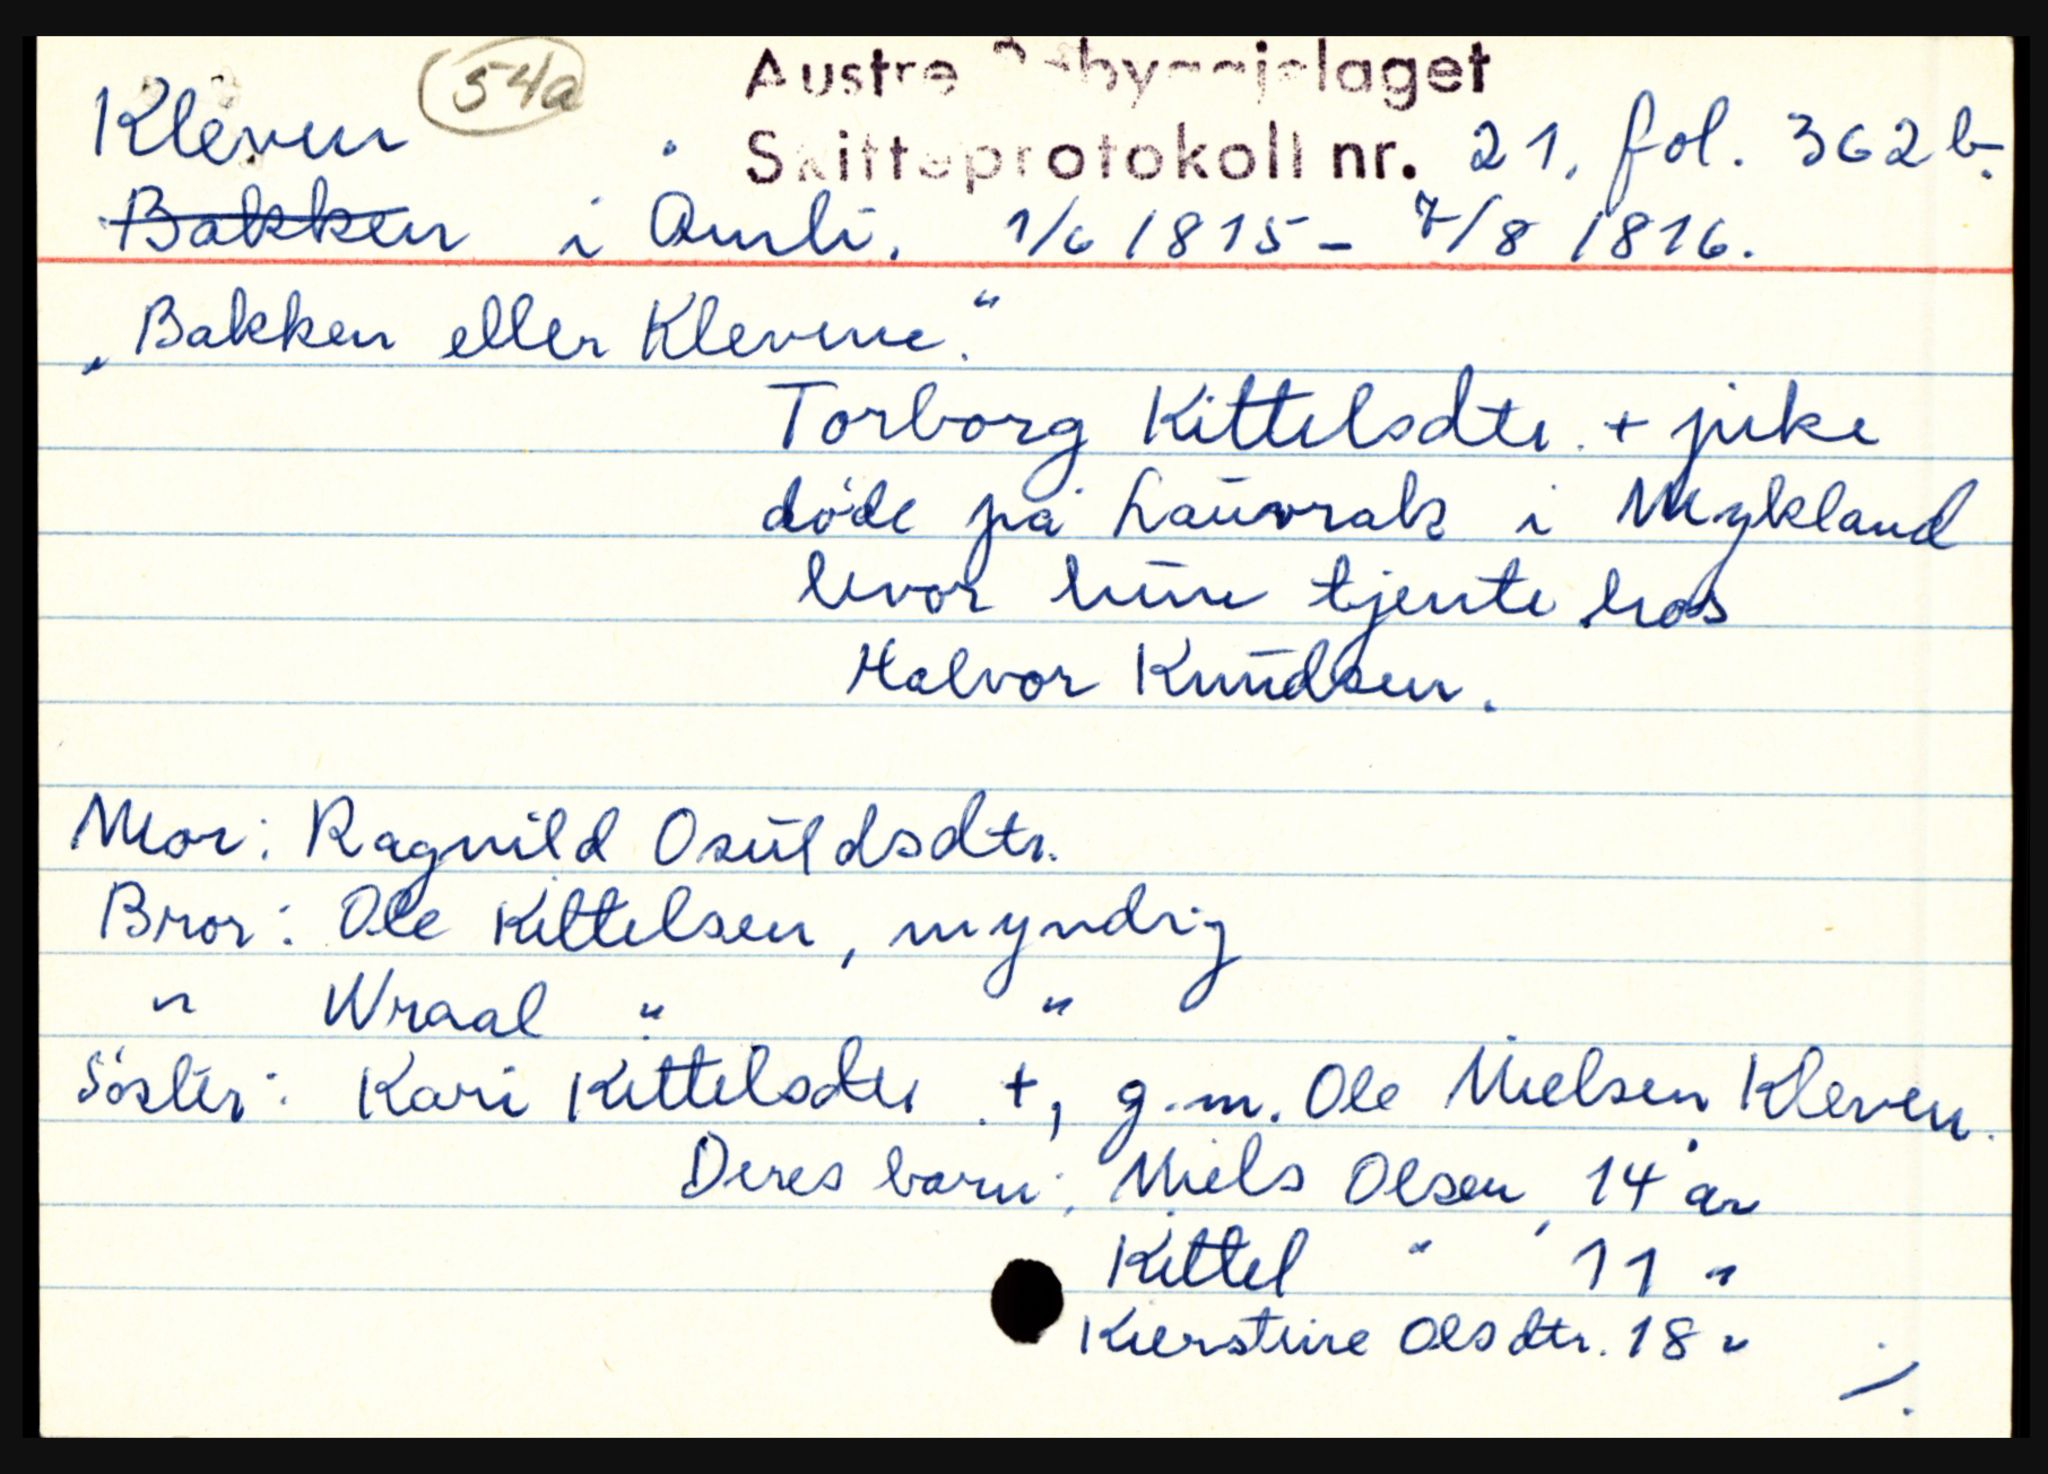 54a
Austre Råbyggjelaget
Kleven . Skifteprotokoll nr. 21. fol. 362b.
Bakken i Åmli. 1/6 1815 - 7/8 1816.
„Bakken eller Klevene."
Torborg Kittelsdtr. + pike
døde på Lauvrak i Mykland
hvor hun tjente hos
Halvor Knudsen.
Mor: Ragnild Osuldsdtr.
Bror: Ole Kittelsen, myndig
" Wraal " "
Søster: Kari Kittelsdtr +, g.m. Ole Nielsen Kleven.
Deres barn: Niels Olsen, 14 år
Kittel " 11 "
Kierstine Olsdtr. 18 "